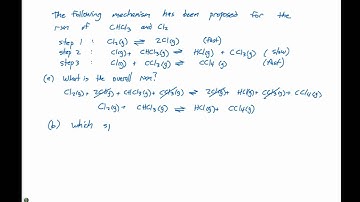 The following mechanism has been proposed for the
rxn of CHCl3 and Cl2
step 1 : Cl2(g) ⇌ 2Cl(g) (fast)
step 2 : Cl(g) + CHCl3(g) ⇌ HCl(g) + CCl3(g) (slow)
step 3 : Cl(g) + CCl3(g) ⇌ CCl4(g) (fast)
(a) What is the overall rxn?
Cl2(g) + 2Cl(g) + CHCl3(g) + CCl3(g) ⇌ 2Cl(g) + HCl(g) + CCl3(g) + CCl4(g)
Cl2(g) + CHCl3(g) ⇌ HCl(g) + CCl4(g)
(b) which s